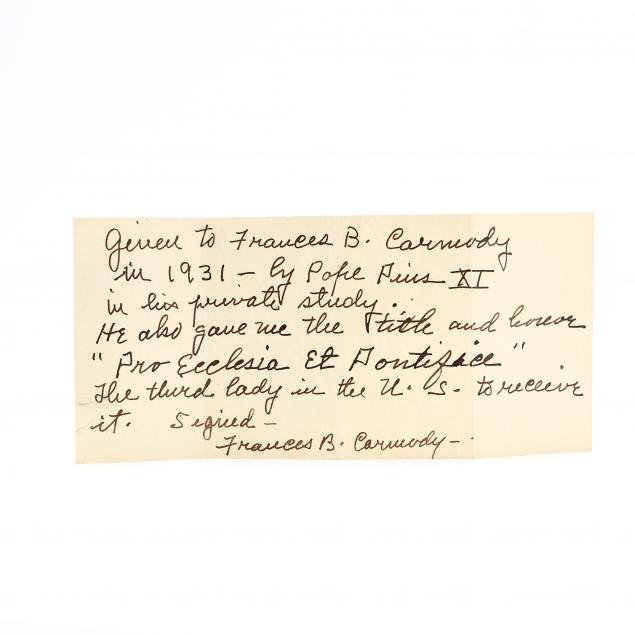 Given to Frances B. Carmody
in 1931 - by Pope Pius XI
in his private study.
He also gave me the title and honor
"Pro Ecclesia Et Pontifice"
The third lady in the U. S. to receive
it. Signed -
Frances B. Carmody -.